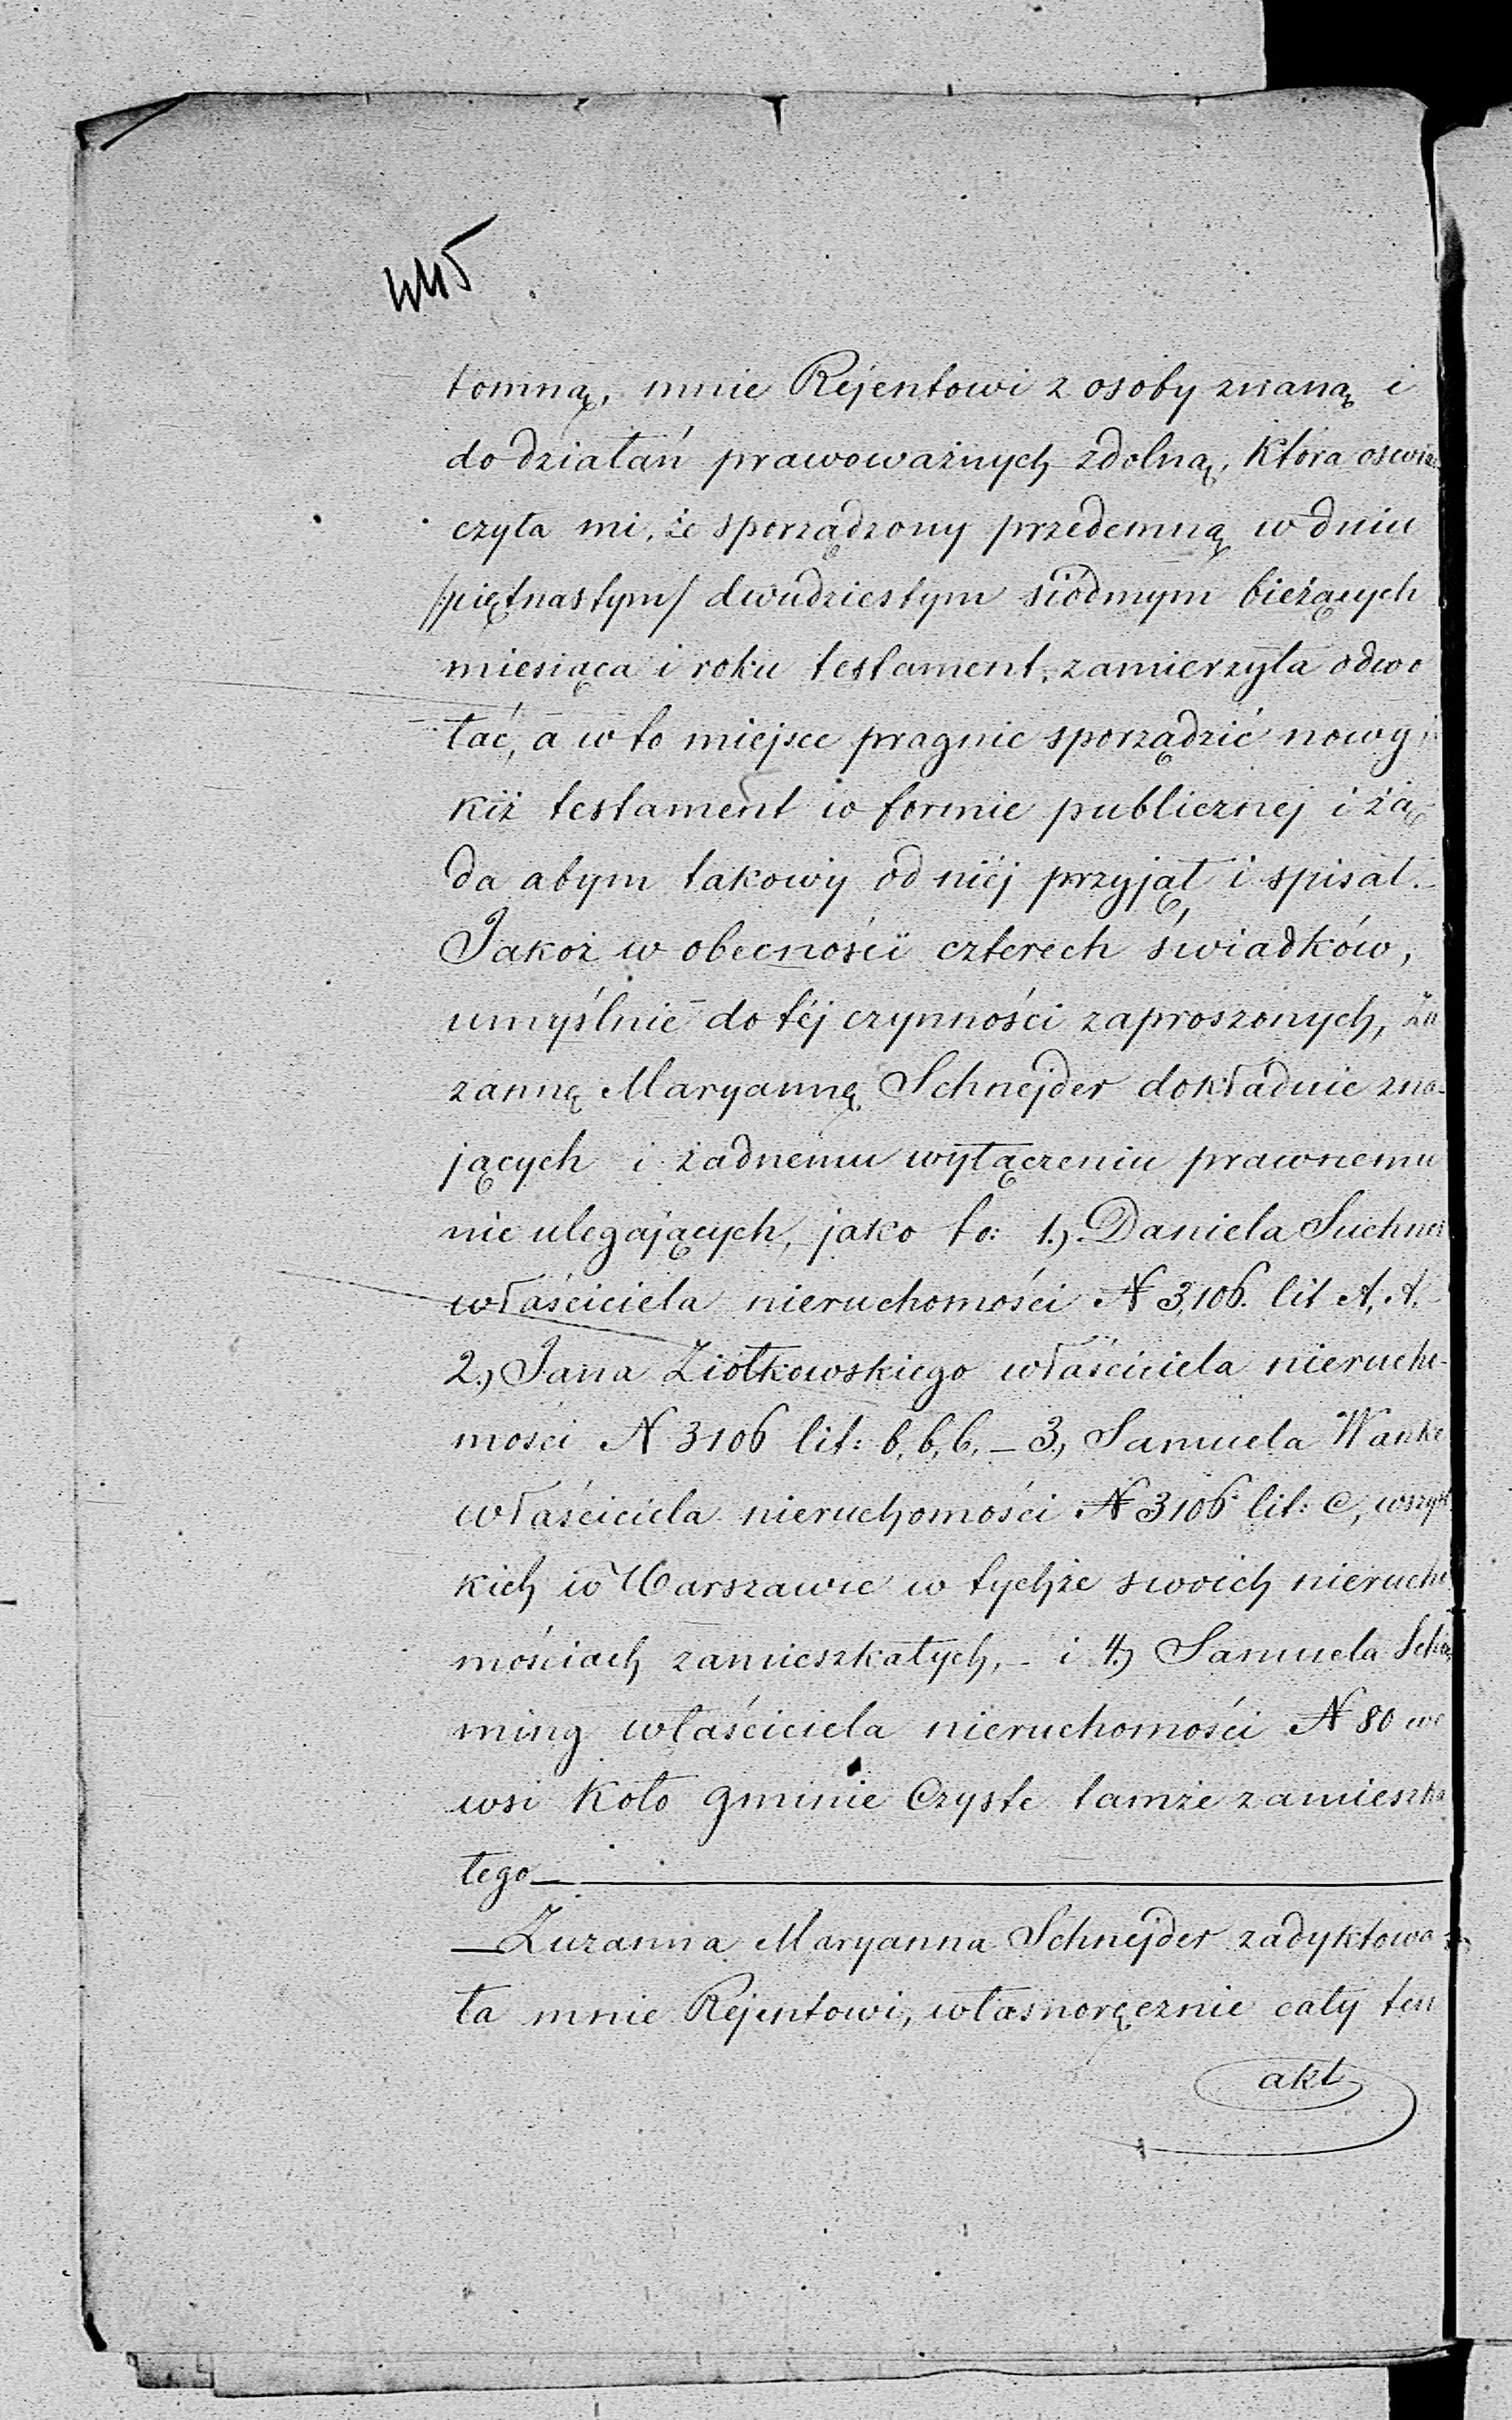 445
tomną, mnie Rejentowi z osoby znaną i
do działań prawoważnych zdolną, która oswia
czyła mi, że sporządzony przedemną w dniu
/piętnastym/ dwudziestym siódmym bieżących
miesiąca i roku testament, zamierzyła odwo
łać, a w to miejsce pragnie sporządzić nowy
kiż testament w formie publicznej i żą-
da abym takowy od niéj przyjął i spisał.-
Jakoż w obecności czterech świadków,
umyślnie do téj czynności zaproszonych, Zu
zannę Maryannę Schnejder dokładnie zna-
jących i żadnemu wyłączeniu prawnemu
nie ulegających, jako to: 1.) Daniela
właściciela nieruchomości N 3,106. lit A, A.
2.) Jana Ziołkowskiego właściciela nierucho-
mości N 3106 lit: b, b, b, - 3.) Samuela Wanke
właściciela nieruchomości N 3106 lit: C, wszyst
kich w Warszawie w tychże swoich nierucho
mościach zamieszkałych, - i 4.) Samuela
ming właściciela nieruchomości N 80 we
wsi Koło gminie Czyste tamże zamieszka
łego
Zuzanna Maryanna Schnejder zadyktowa
ła mnie Rejentowi, własnoręcznie cały ten
akt